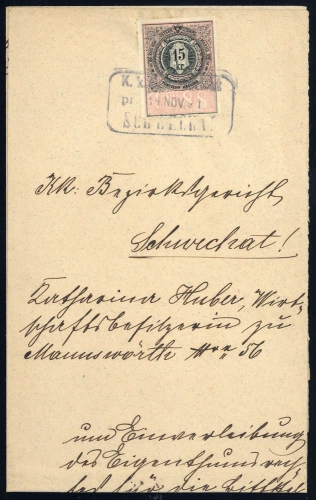 15
kr
K.K.
NOV.
SCHWECHAT
KK: Bezirksgericht
Schwechat!
Katharina Huber, Wirt=
schaftsbesitzerin zu
Mannswörth Nro 56
und Einverleibung
des Eigenthumsrech=
tes für die